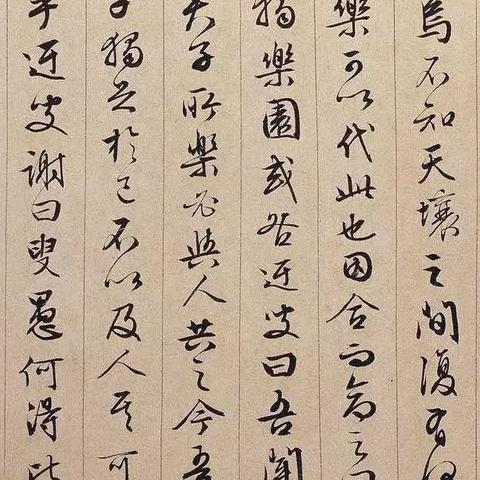 焉不知天壤之間復有何
樂可以代此也因合而命之曰
獨樂園或咎迂叟曰吾聞
君子所樂必與人共之今吾
子獨足於己不以及人其可
乎迂叟謝曰叟愚何得比